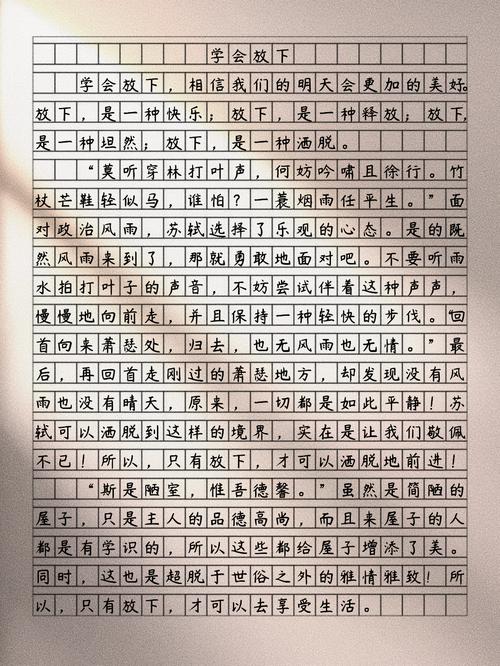 学会放下
学会放下，相信我们的明天会更加的美好。
放下，是一种快乐；放下，是一种释放；放下，
是一种坦然；放下，是一种洒脱。
“莫听穿林打叶声，何妨吟啸且徐行。竹
杖芒鞋轻似马，谁怕？一蓑烟雨任平生。”面
对政治风雨，苏轼选择了乐观的心态。是的既
然风雨来到了，那就勇敢地面对吧。不要听雨
水拍打叶子的声音，不妨尝试伴着这种声声，
慢慢地向前走，并且保持一种轻快的步伐。“回
首向来萧瑟处，归去，也无风雨也无情。”最
后，再回首走刚过的萧瑟地方，却发现没有风
雨也没有晴天，原来，一切都是如此平静！苏
轼可以洒脱到这样的境界，实在是让我们敬佩
不已！所以，只有放下，才可以洒脱地前进！
“斯是陋室，惟吾德馨。”虽然是简陋的
屋子，只是主人的品德高尚，而且来屋子的人
都是有学识的，所以这些都给屋子增添了美。
同时，这也是超脱于世俗之外的雅情雅致！所
以，只有放下，才可以去享受生活。